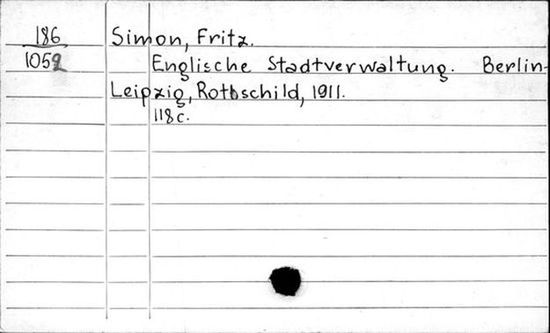 186
1052
Simon, Fritz.
Englische Stadtverwaltung. Berlin-
Leipzig, Rothschild, 1911.
118c.